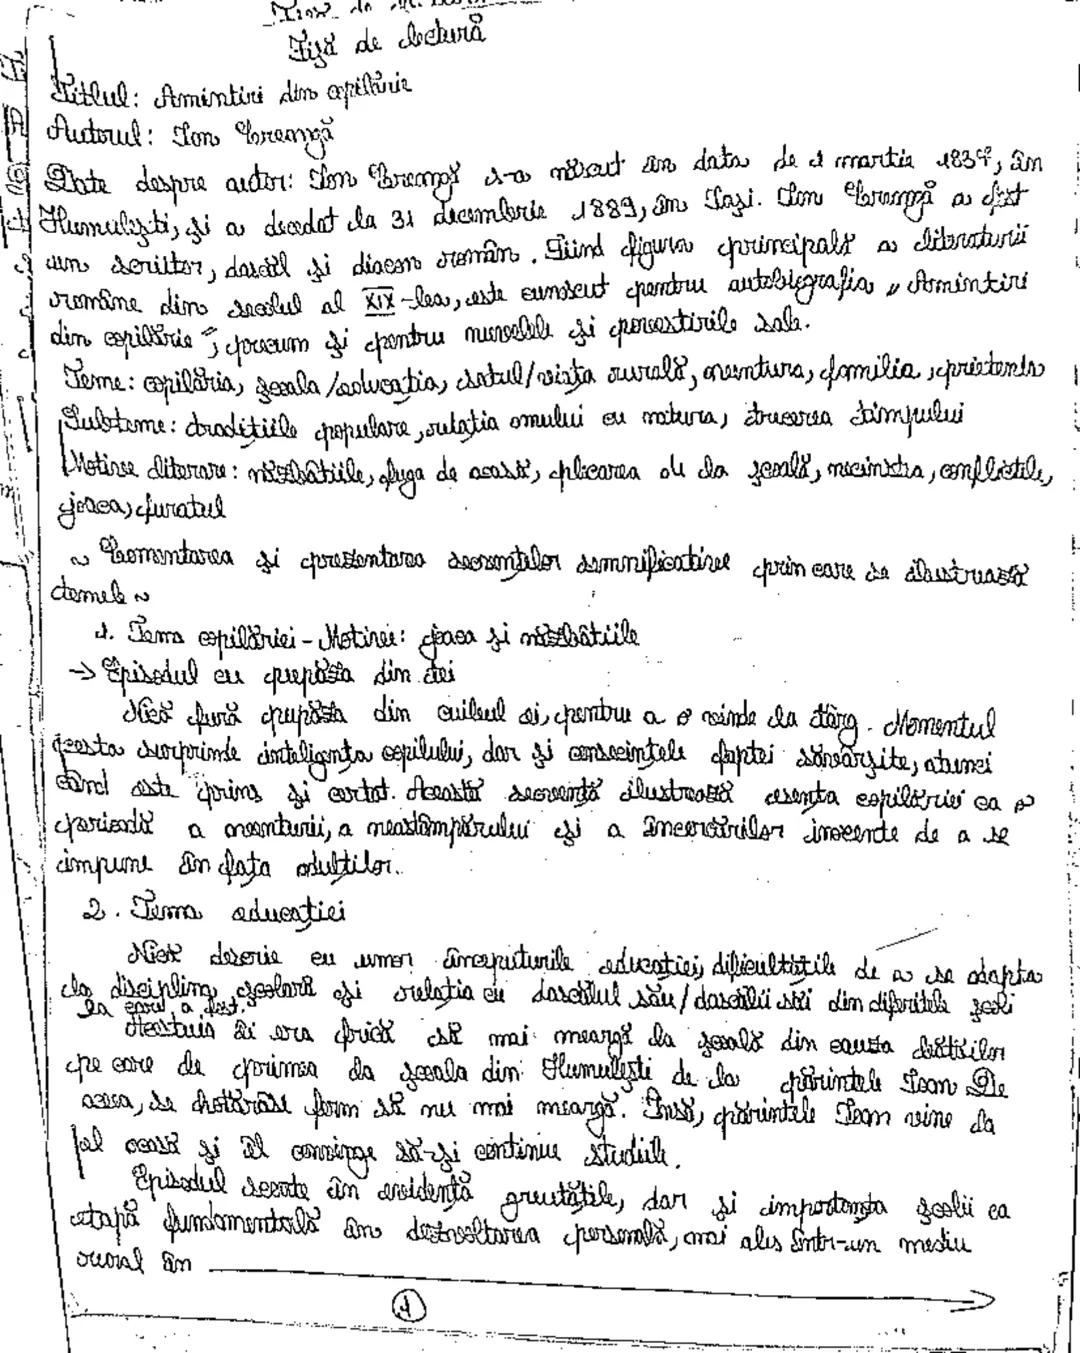 Fișă de lectură
Titlul: Amintiri din copilărie
Autorul: Ion Creangă
Date despre autor: Ion Creangă s-a născut în data de 1 martie 1837, în
Humulești, și a decedat la 31 decembrie 1889, în Iași. Ion Creangă a fost
un scriitor, dascăl și diacon român. Fiind figura principală a literaturii
române din secolul al XIX-lea, este cunoscut pentru autobiografia „Amintiri
din copilărie", precum și pentru nuvelele și povestirile sale.
Teme: copilăria, școala/educația, satul/viața rurală, aventura, familia, prietenia
Subteme: tradițiile populare, relația omului cu natura, trecerea timpului
Motive literare: năzbâtiile, fuga de acasă, plicarea de la școală, nevinovția, conflictele,
joaca, furatul
~ Comentarea și prezentarea secvențelor semnificative prin care se ilustrează
temele ~
1. Tema copilăriei - Motive: joaca și năzbâtiile
→ Episodul cu pupăza din tei
Nică fură pupăza din cuibul ei, pentru a o vinde la târg. Momentul
acesta surprinde inteligența copilului, dar și consecințele faptei săvârșite, atunci
când este prins și certat. Această secvență ilustrează esența copilăriei ca o
perioadă a aventurii, a neastâmpărului și a încercărilor inocente de a se
impune în fața adulților.
2. Tema educației
Nică descrie cu umor începuturile educației, dificultățile de a se adapta
la disciplina școlară și relația cu dascălul său/dascălii săi din diferitele școli
la care a fost.
Acestuia îi era frică să mai meargă la școală din cauza bătăilor
pe care le primea la școala din Humulești de la părintele Ioan. De
aceea, se hotărăse ferm să nu mai meargă. Însă, părintele Ioan vine la
el acasă și îl convinge să-și continue studiile.
Episodul scoate în evidență greutățile, dar și importanța școlii ca
etapă fundamentală în dezvoltarea personală, mai ales într-un mediu
rural în
1